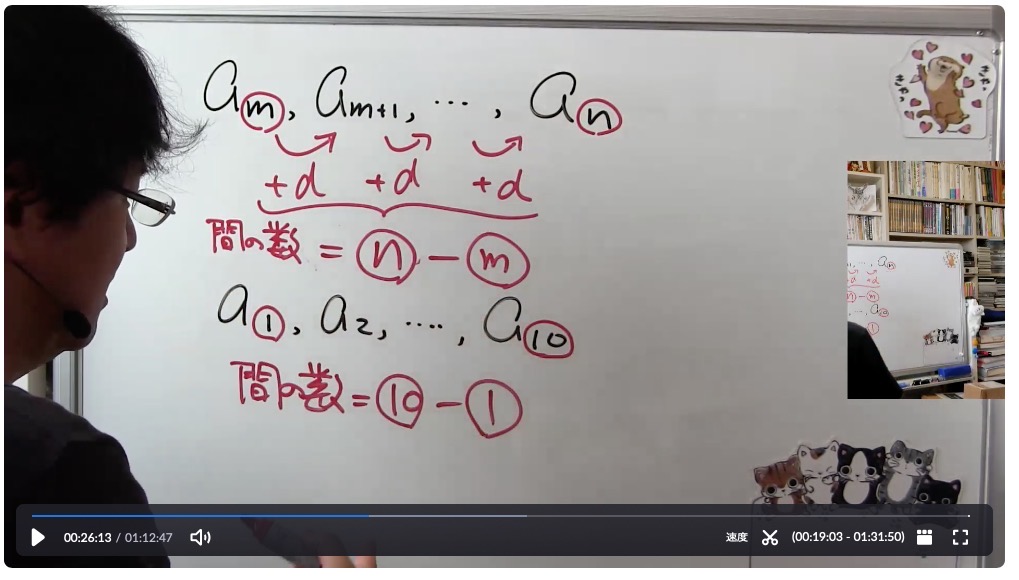 am, am+1, ..., an
+d +d +d
間の数 = n - m
a1, a2, ...., a10
間の数 = 10 - 1
00:26:13 / 01:12:47 速度 (00:19:03 - 01:31:50)